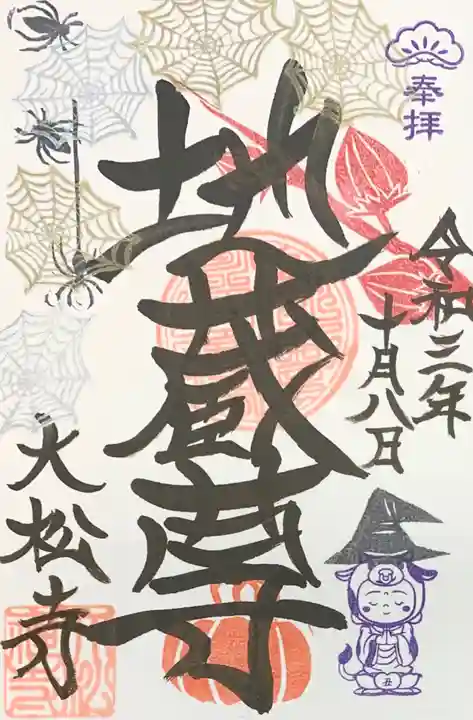 奉拝
令和三年
十月八日
地蔵尊
大松寺
丑